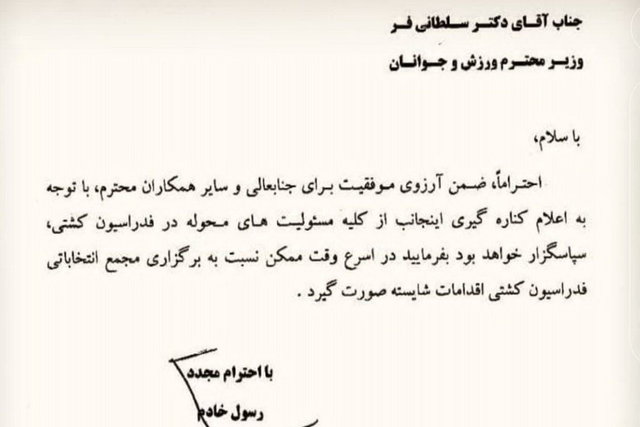 جناب آقای دکتر سلطانی فر
وزیر محترم ورزش و جوانان
با سلام،
احتراماً، ضمن آرزوی موفقیت برای جنابعالی و سایر همکاران محترم، با توجه
به اعلام کناره گیری اینجانب از کلیه مسئولیت های محوله در فدراسیون کشتی،
سپاسگزار خواهد بود بفرمایید در اسرع وقت ممکن نسبت به برگزاری مجمع انتخاباتی
فدراسیون کشتی اقدامات شایسته صورت گیرد .
با احترام مجدد
رسول خادم